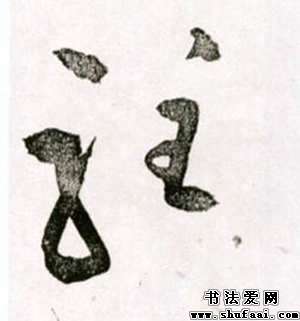 註
书法爱网
www.shufaai.com